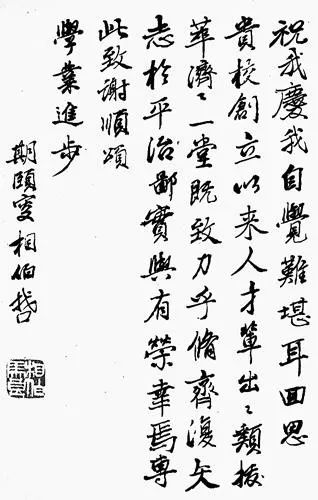 祝我慶我自覺難堪耳回思
貴校創立以来人才輩出々類拔
萃濟々一堂既致力乎脩齊復矢
志於平治鄙實與有榮幸焉專
此致謝順頌
學業進步
期頤叟相伯